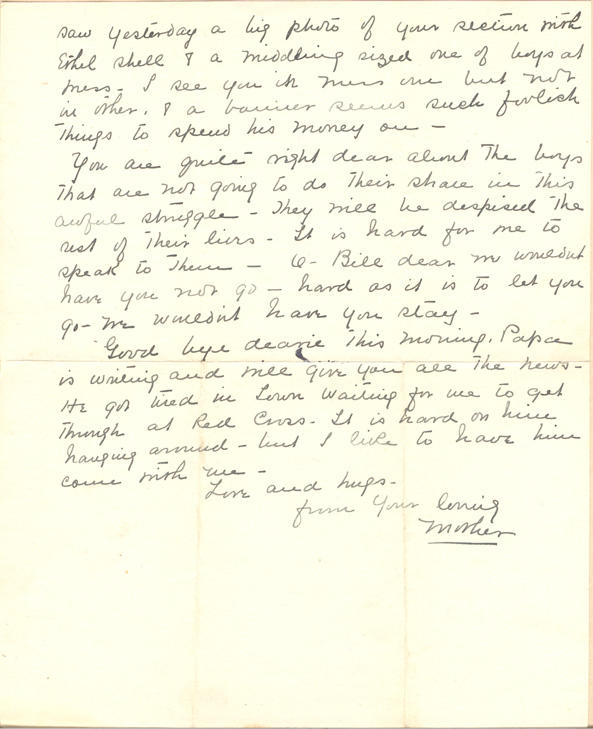 saw yesterday a big photo of your section with
Ethel shell & a middling sized one of boys at
mess - I see you in mess one but not
in other. & a banner seems such foolish
things to spend his money on -
You are quite right dear about the boys
that are not going to do their share in this
awful struggle - They will be despised the
rest of their lives - It is hard for me to
speak to them - O - Bill dear we wouldnt
have you not go - hard as it is to let you
go - we wouldn't have you stay -
Good bye dearie this morning. Papa
is writing and will give you all the news -
He got tired in town waiting for me to get
through at Red Cross - It is hard on him
hanging around - but I like to have him
come with me -
Love and hugs -
from your loving
Mother